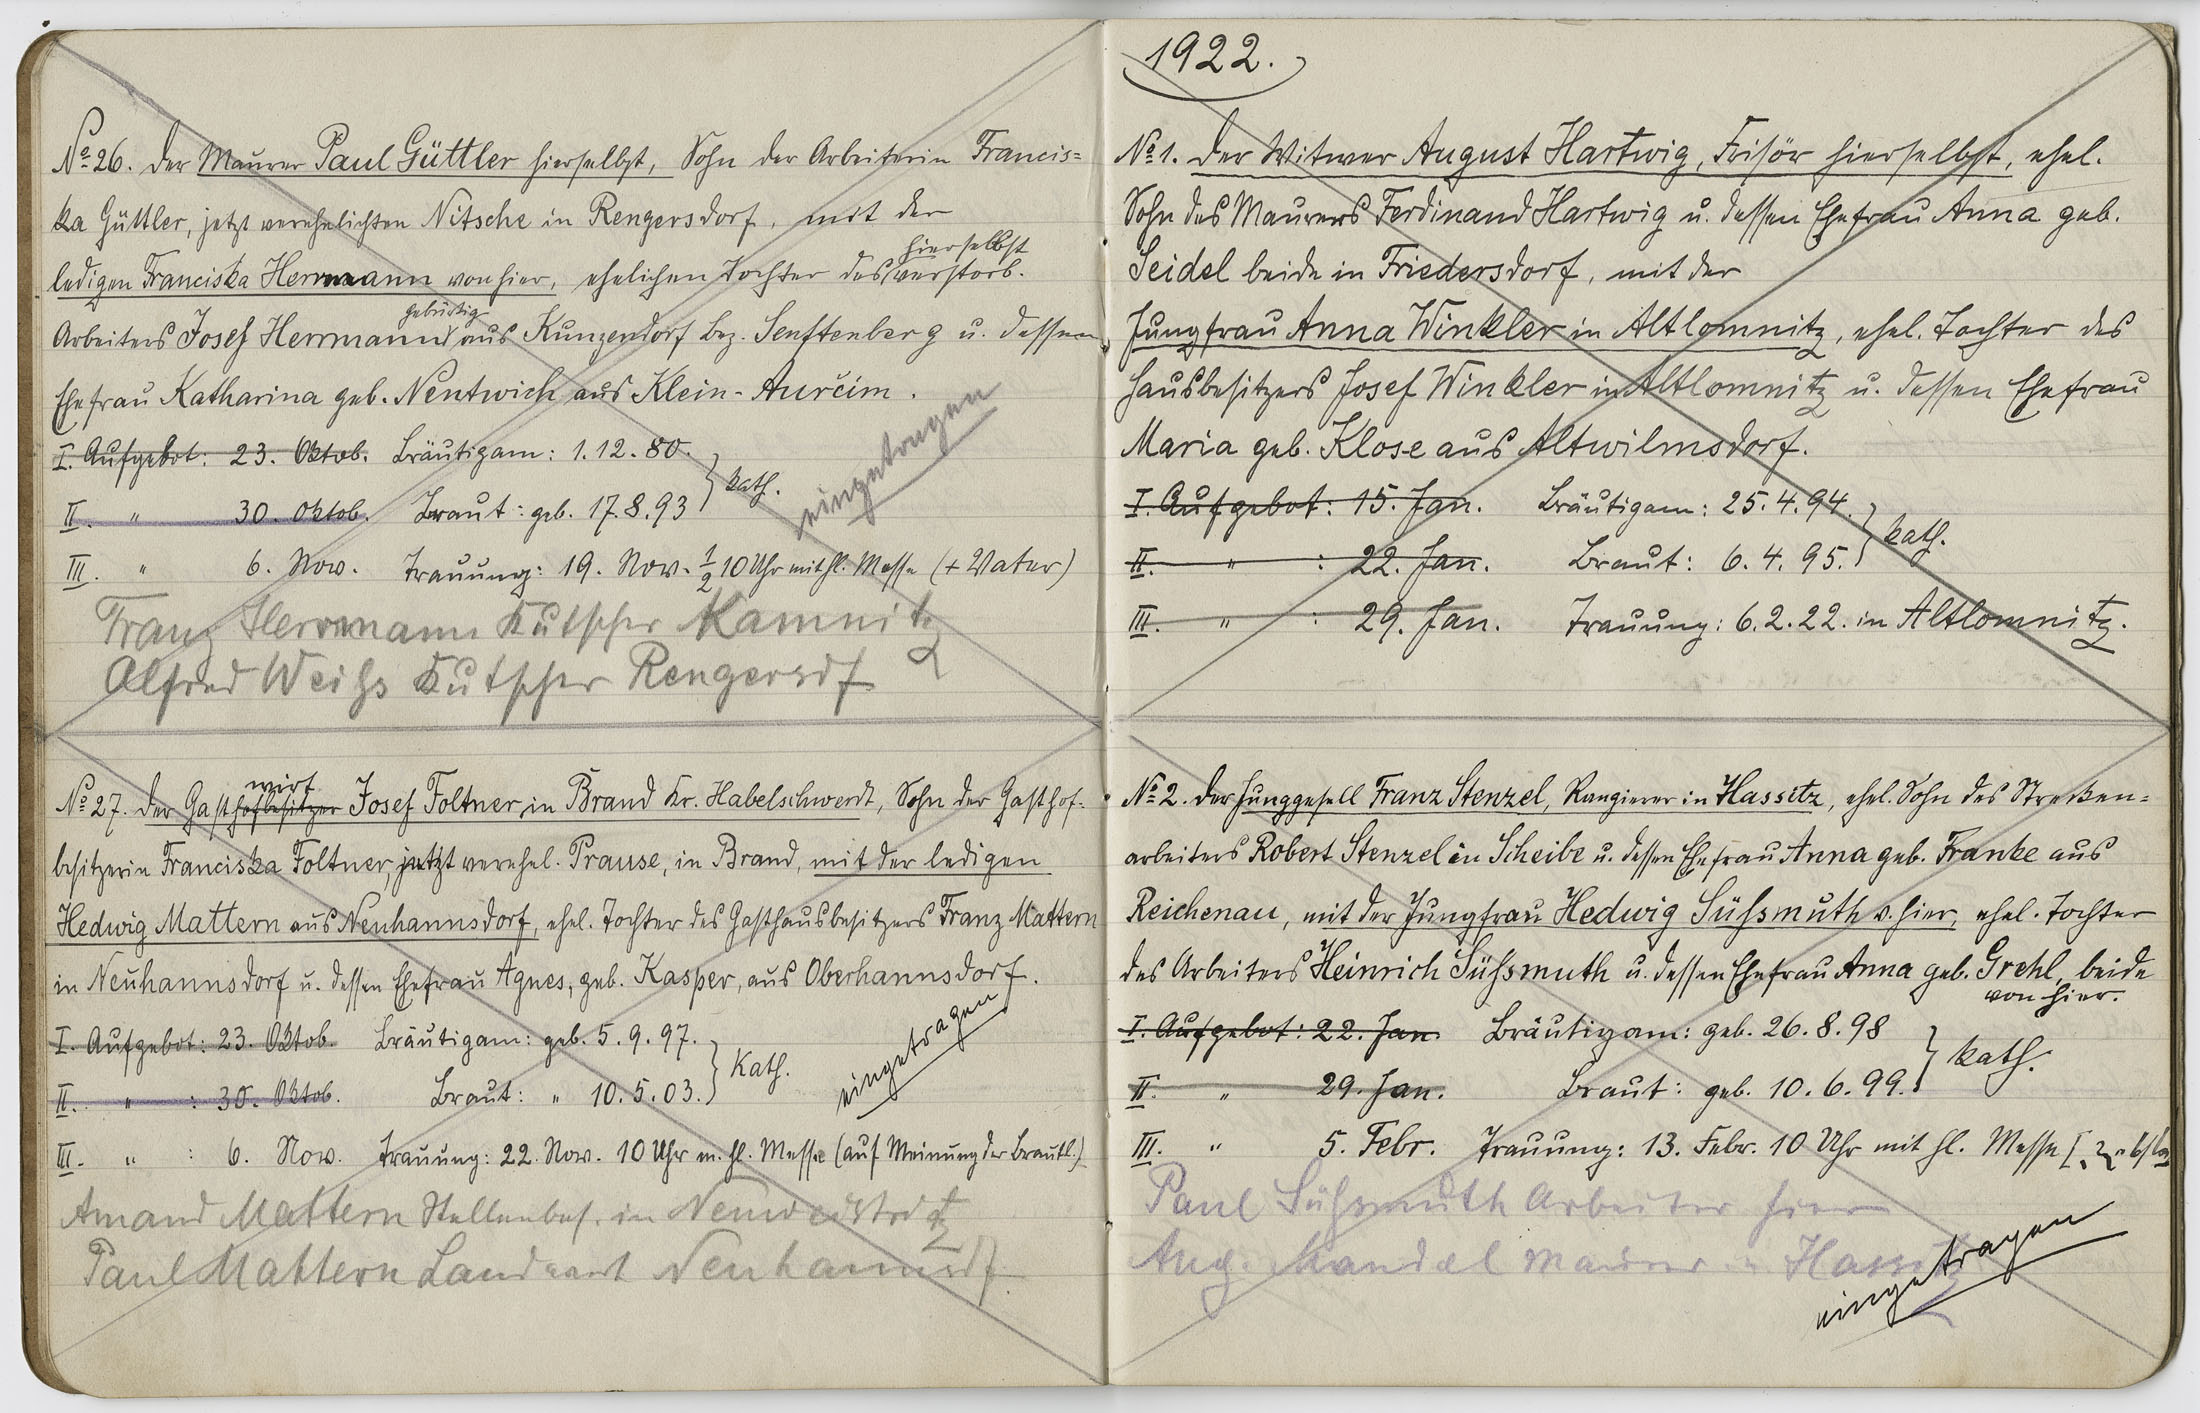 No 26. der Maurer Paul Güttler hierselbst, Sohn der Arbeiterin Francis=
ka Güttler, jetzt verehelichten Nitsche in Rengersdorf, mit der
hierselbst
ledigen Franciska Herrmann von hier, ehelichen Tochter des verstorb.
gebürtig
Arbeiters Josef Herrmann aus Kunzendorf Bez. Senftenberg u. dessen
Ehefrau Katharina geb. Nentwich aus Klein-Aurčim.
I. Aufgebot: 23. Oktob. Bräutigam: 1.12.80.
II. " 30. Oktob. Braut: geb. 17.8.93 } kath.
eingetragen
III. " 6. Nov. Trauung: 19. Nov. ½10 Uhr mit hl. Messe (+ Vater)
Franz Herrmann Kutscher Kamnitz
Alfred Weihs Kutscher Rengersdf
wirt
No 27. der Gasthofbesitzer Josef Foltner in Brand Kr. Habelschwerdt, Sohn der Gasthof-
besitzerin Franciska Foltner, jetzt verehel. Prause, in Brand, mit der ledigen
Hedwig Mattern aus Neuhannsdorf, ehel. Tochter des Gasthausbesitzers Franz Mattern
in Neuhannsdorf u. dessen Ehefrau Agnes, geb. Kasper, aus Oberhannsdorf.
I. Aufgebot: 23. Oktob. Bräutigam: geb. 5.9.97.
II. " : 30. Oktob. Braut: " 10.5.03. } Kath.
eingetragen
III. " : 6. Nov. Trauung: 22. Nov. 10 Uhr m. hl. Messe (auf Meinung der Brautl.)
Amand Mattern Stellenbes. in
Paul Mattern Landwirt Neuhannsdf.
1922.
No 1. Der Witwer August Hartwig, Frisör hierselbst, ehel.
Sohn des Maurers Ferdinand Hartwig u. dessen Ehefrau Anna geb.
Seidel beide in Friedersdorf, mit der
Jungfrau Anna Winkler in Altlomnitz, ehel. Tochter des
Hausbesitzers Josef Winkler in Altlomnitz u. dessen Ehefrau
Maria geb. Klose aus Altwilmsdorf.
I. Aufgebot: 15. Jan. Bräutigam: 25.4.94.
II. " : 22. Jan. Braut: 6.4.95. } kath.
III. " : 29. Jan. Trauung: 6.2.22. in Altlomnitz.
No 2. Der Junggesell Franz Stenzel, Rangierer in Hassitz, ehel. Sohn des Strecken=
arbeiters Robert Stenzel in Scheibe u. dessen Ehefrau Anna geb. Franke aus
Reichenau, mit der Jungfrau Hedwig Süßsmuth v. hier, ehel. Tochter
des Arbeiters Heinrich Süßsmuth u. dessen Ehefrau Anna geb. Grehl, beide
von hier.
I. Aufgebot: 22. Jan. Bräutigam: geb. 26.8.98
II. " 29. Jan. Braut: geb. 10.6.99. } kath.
III. " 5. Febr. Trauung: 13. Febr. 10 Uhr mit hl. Messe
Paul Süßsmuth Arbeiter hier
Aug. Mandel Maurer in Hassitz
eingetragen